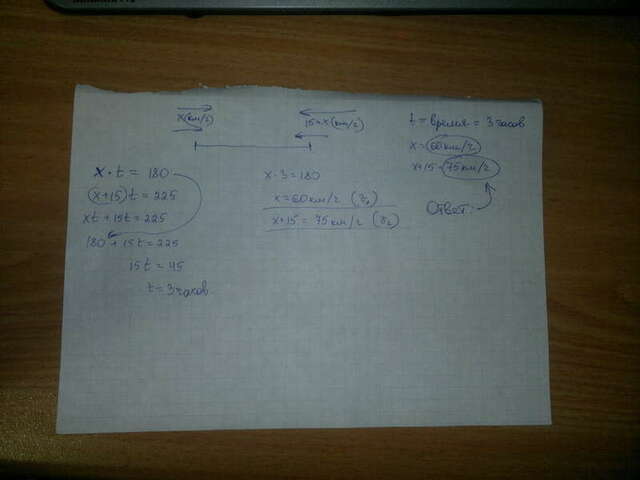 x(км/ч)
15+x(км/ч)
x · t = 180
(x+15)t = 225
xt + 15t = 225
180 + 15t = 225
15t = 45
t = 3 часов
x · 3 = 180
x = 60 км/ч (v₁)
x+15 = 75 км/ч (v₂)
t = время = 3 часов
x = 60 км/ч
x+15 = 75 км/ч
Ответ: